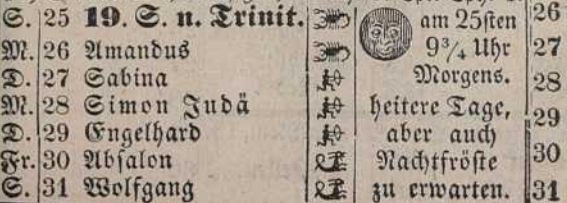 S. 25 19. S. n. Trinit. am 25sten 26
M. 26 Amandus 9¾ Uhr 27
D. 27 Sabina Morgens. 28
M. 28 Simon Judä heitere Tage, 29
D. 29 Engelhard aber auch
Fr. 30 Absalon Nachtfröste 30
S. 31 Wolfgang zu erwarten. 31